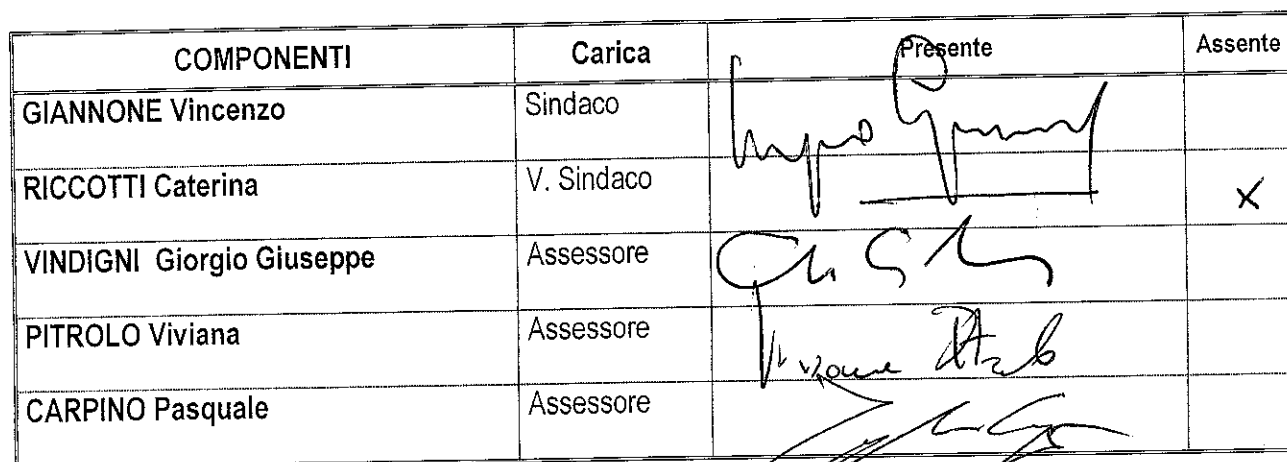 COMPONENTI Carica Presente Assente
GIANNONE Vincenzo Sindaco
RICCOTTI Caterina V. Sindaco X
VINDIGNI Giorgio Giuseppe Assessore
PITROLO Viviana Assessore
CARPINO Pasquale Assessore